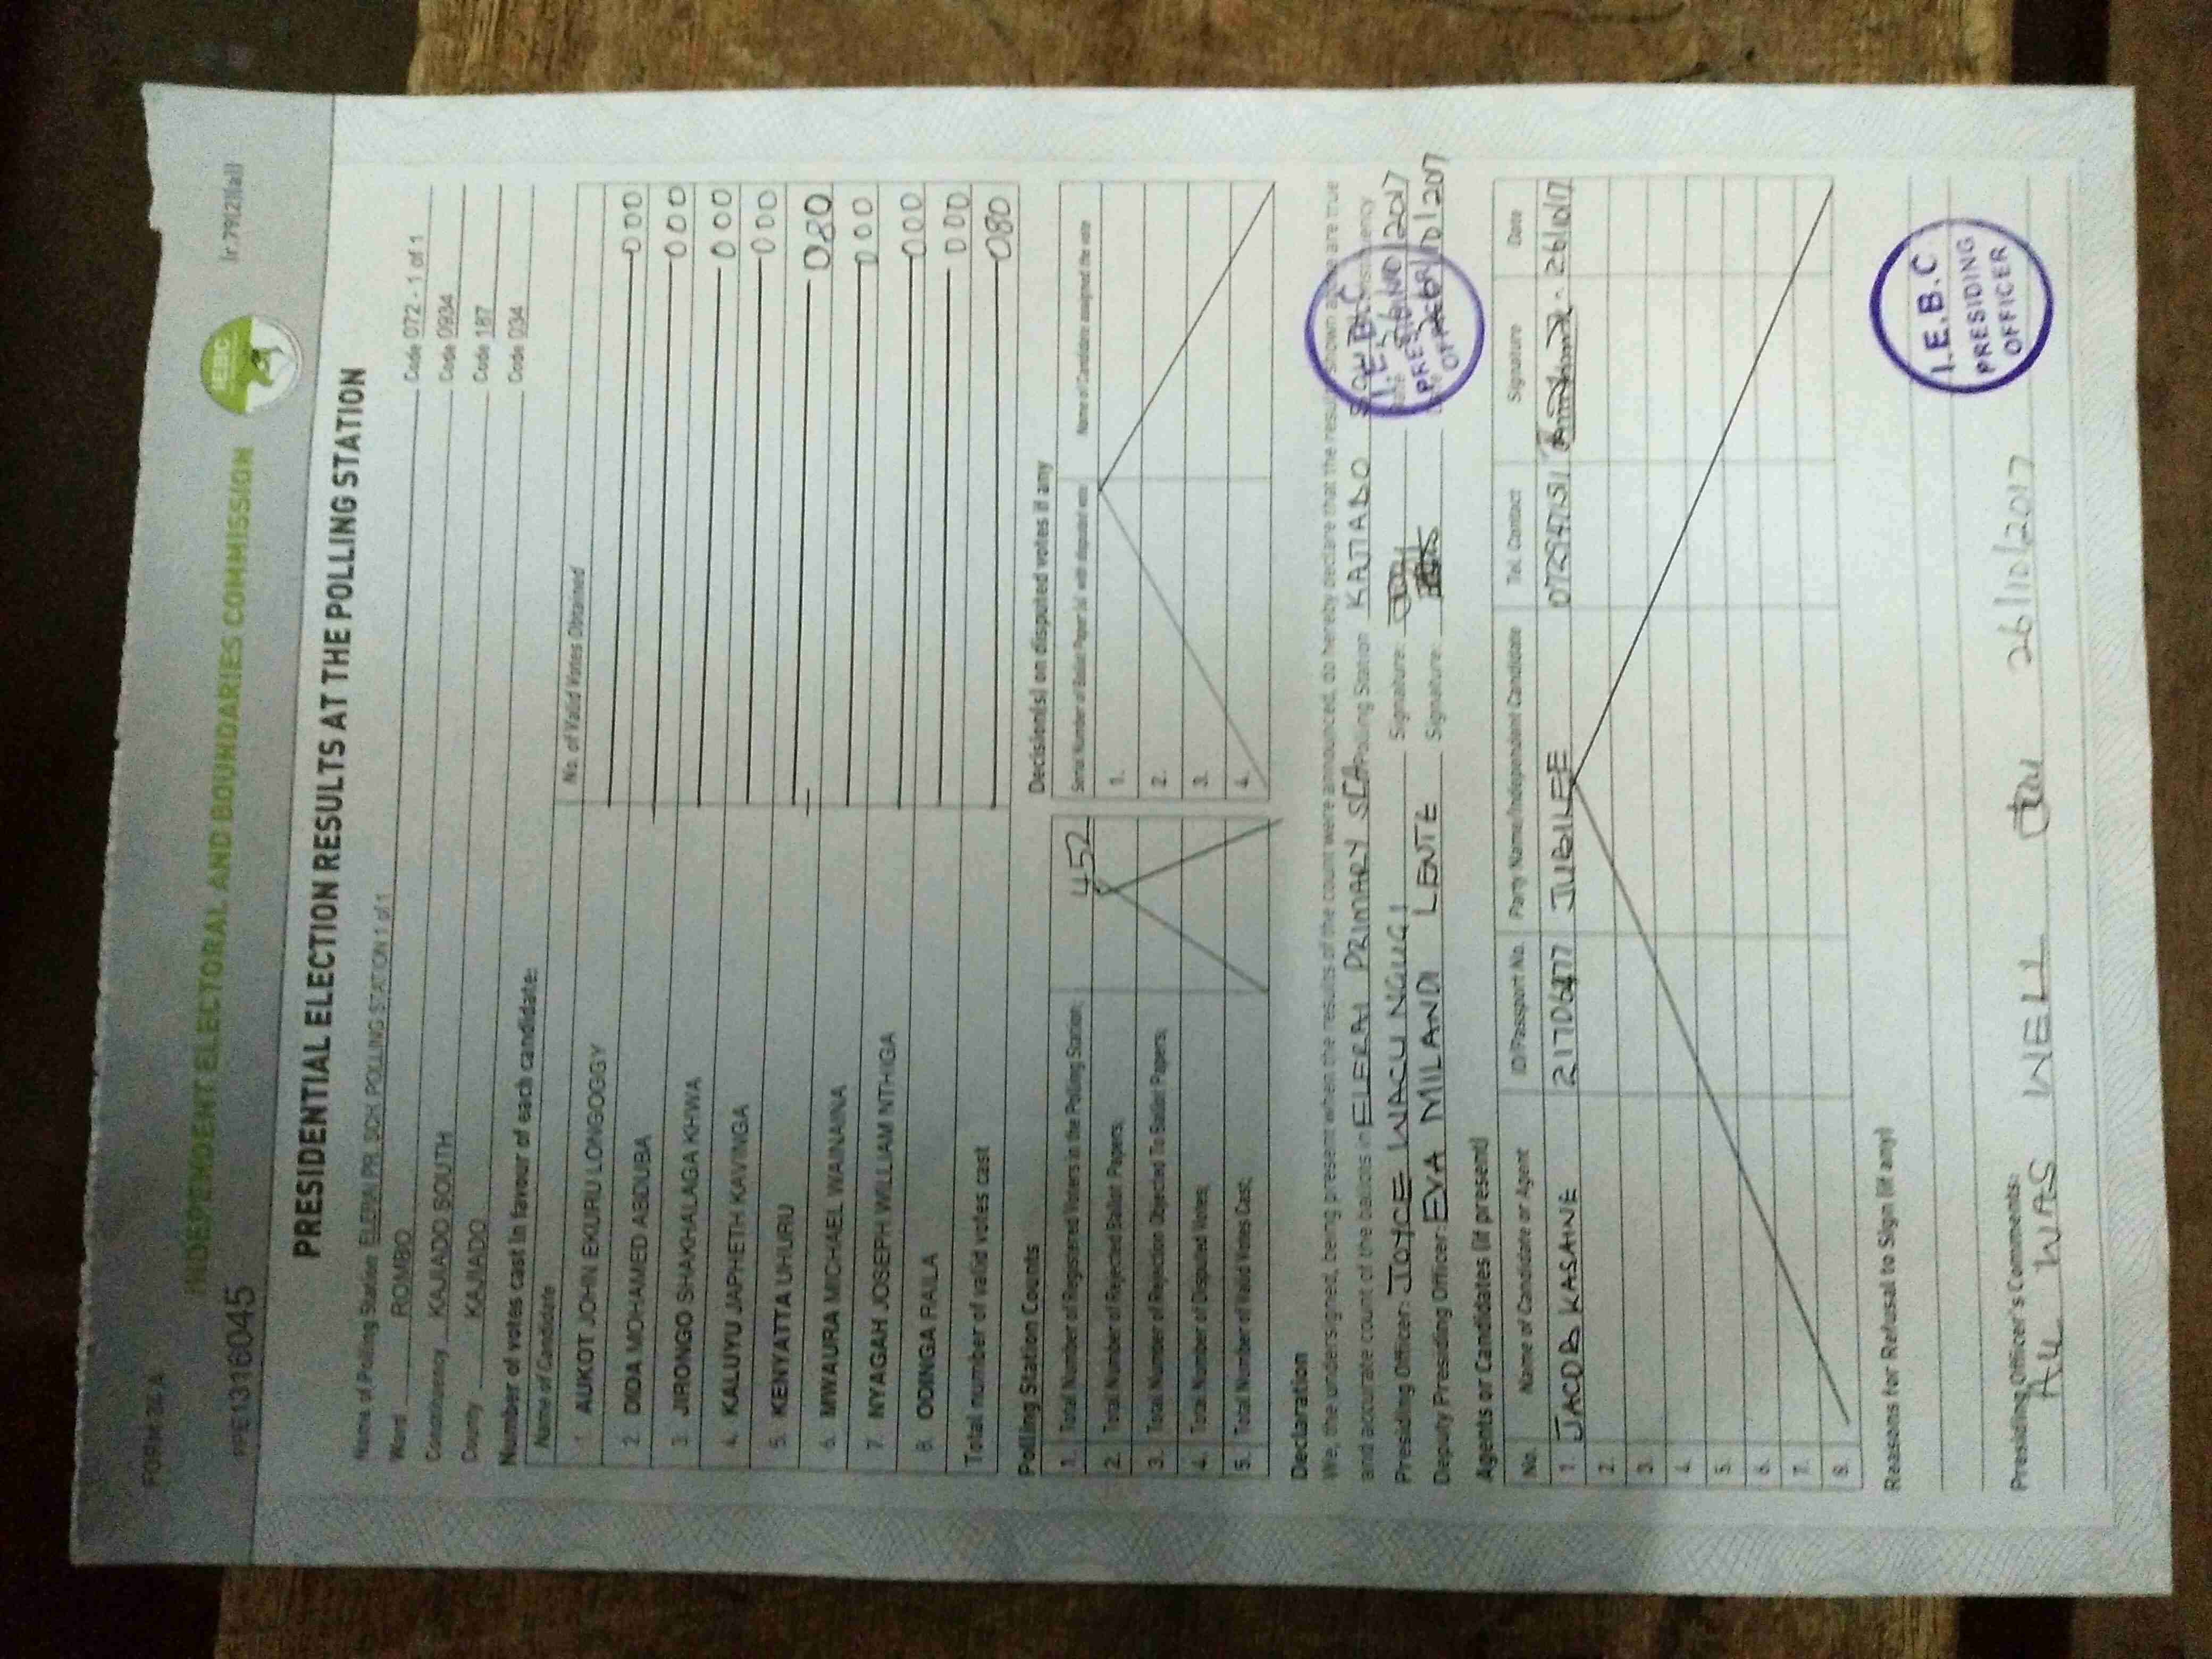 FORM 34A
PFE1316045
INDEPENDENT ELECTORAL AND BOUNDARIES COMMISSION
IEBC
[r.79(2)(a)]
PRESIDENTIAL ELECTION RESULTS AT THE POLLING STATION
Name of Polling Station ELERAI PR. SCH. POLLING STATION 1 of 1 Code 072 - 1 of 1
Ward ROMBO Code 0934
Constituency KAJIADO SOUTH Code 187
County KAJIADO Code 034
Number of votes cast in favour of each candidate:
Name of Candidate No. of Valid Votes Obtained
1. AUKOT JOHN EKURU LONGOGGY 000
2. DIDA MOHAMED ABDUBA 000
3. JIRONGO SHAKHALAGA KHWA 000
4. KALUYU JAPHETH KAVINGA 000
5. KENYATTA UHURU 080
6. MWAURA MICHAEL WAINAINA 000
7. NYAGAH JOSEPH WILLIAM NTHIGA 000
8. ODINGA RAILA 000
Total number of valid votes cast 080
Polling Station Counts
1. Total Number of Registered Voters in the Polling Station; 452
2. Total Number of Rejected Ballot Papers;
3. Total Number of Rejection Objected To Ballot Papers;
4. Total Number of Disputed Votes;
5. Total Number of Valid Votes Cast;
Decision(s) on disputed votes if any
Serial Number of Ballot Paper (s) with disputed vote Name of Candidate assigned the vote
1.
2.
3.
4.
Declaration
We, the undersigned, being present when the results of the count were announced, do hereby declare that the results shown above are true
and accurate count of the ballots in ELERAI PRIMARY SCH Polling Station KAJIADO SOUTH Constituency
Presiding Officer: JOYCE WACU NGUGI Signature: 26/10/2017
Deputy Presiding Officer: EVA MILANOI LENTE Signature: 26/10/2017
I.E.B.C. PRESIDING OFFICER
Agents or Candidates (if present)
No. Name of Candidate or Agent ID/Passport No. Party Name/Independent Candidate Tel. Contact Signature Date
1. JACOB KASAINE JUBILEE 26/10/17
2.
3.
4.
5.
6.
7.
8.
Reasons for Refusal to Sign (if any)
I.E.B.C.
PRESIDING
OFFICER
Presiding Officer's Comments:
ALL WAS WELL 26/10/2017